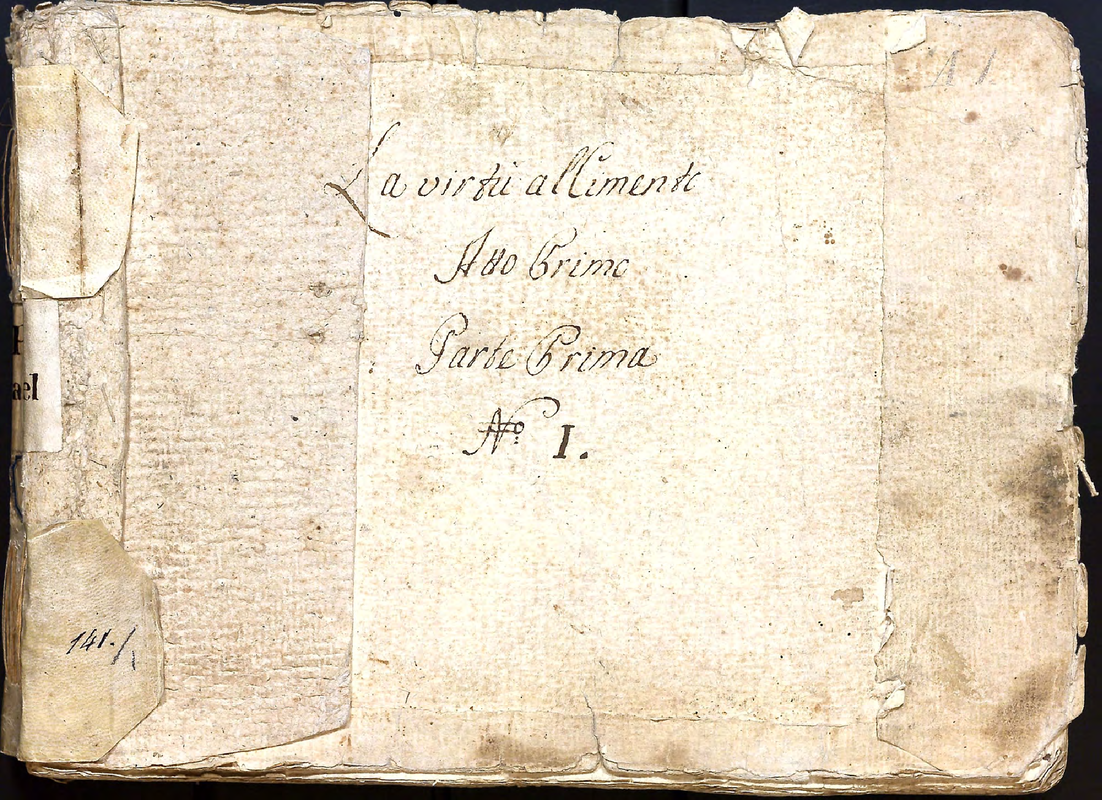 La virtù al Cimento
Atto Primo
Parte Prima
No. I.
ael
141./.
11